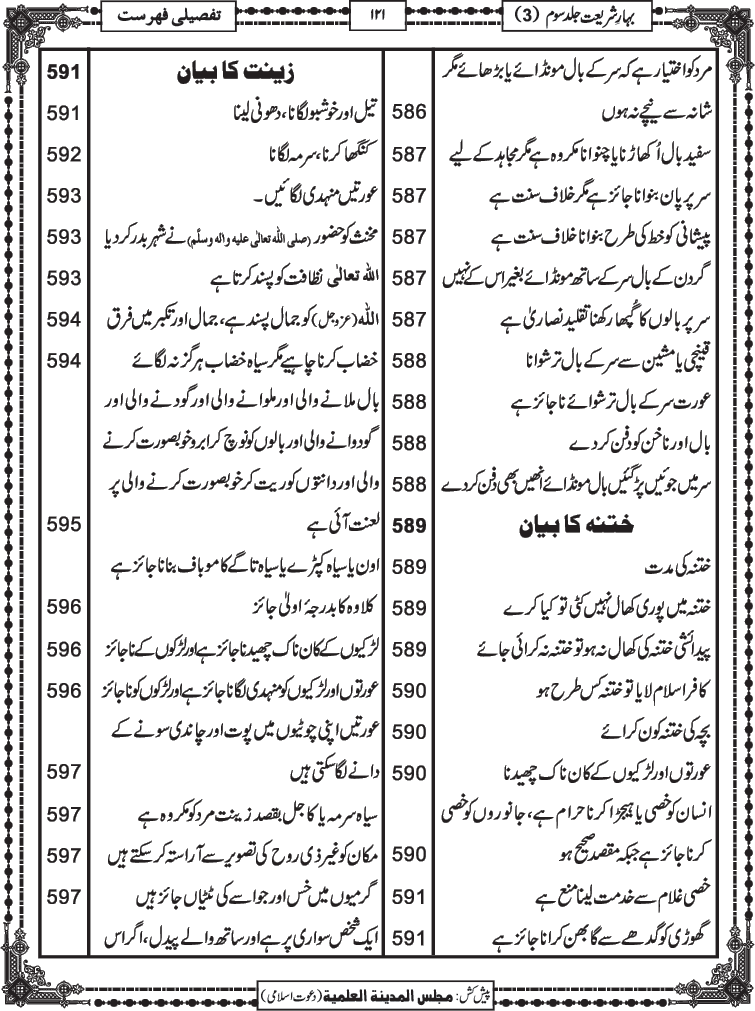 بہارِ شریعت جلد سوم (3)
۱۲۱
تفصیلی فہرست
مرد کو اختیار ہے کہ سر کے بال مونڈائے یا بڑھائے مگر
شانہ سے نیچے نہ ہوں 586
سفید بال اُکھاڑنا یا چنوانا مکروہ ہے مگر مجاہد کے لیے 587
سر پر پان بنوانا جائز ہے مگر خلاف سنت ہے 587
پیشانی کو خط کی طرح بنوانا خلاف سنت ہے 587
گردن کے بال سر کے ساتھ مونڈائے بغیر اس کے نہیں 587
سر پر بالوں کا گُپھا رکھنا تقلید نصاریٰ ہے 587
قینچی یا مشین سے سر کے بال ترشوانا 588
عورت سر کے بال ترشوائے ناجائز ہے 588
بال اور ناخن کو دفن کر دے 588
سر میں جوئیں پڑ گئیں بال مونڈائے انھیں بھی دفن کر دے 588
ختنہ کا بیان 589
ختنہ کی مدت 589
ختنہ میں پوری کھال نہیں کٹی تو کیا کرے 589
پیدائشی ختنہ کی کھال نہ ہو تو ختنہ نہ کرائی جائے 589
کافر اسلام لایا تو ختنہ کس طرح ہو 590
بچہ کی ختنہ کون کرائے 590
عورتوں اور لڑکیوں کے کان ناک چھیدنا 590
انسان کو خصی یا ہیجڑا کرنا حرام ہے، جانوروں کو خصی
کرنا جائز ہے جبکہ مقصد صحیح ہو 590
خصی غلام سے خدمت لینا منع ہے 591
گھوڑی کو گدھے سے گابھن کرانا جائز ہے 591
زینت کا بیان 591
تیل اور خوشبو لگانا، دھونی لینا 591
کنگھا کرنا، سرمہ لگانا 592
عورتیں منہدی لگائیں۔ 593
مخنث کو حضور (صلی اللہ تعالٰی علیہ والہ وسلّم) نے شہر بدر کر دیا 593
اللہ تعالٰی نظافت کو پسند کرتا ہے 593
اللہ (عزوجل) کو جمال پسند ہے، جمال اور تکبر میں فرق 594
خضاب کرنا چاہیے مگر سیاہ خضاب ہرگز نہ لگائے 594
بال ملانے والی اور ملوانے والی اور گودنے والی اور
گودوانے والی اور بالوں کو نوچ کر ابرو خوبصورت کرنے
والی اور دانتوں کو ریت کر خوبصورت کرنے والی پر
لعنت آئی ہے 595
اون یا سیاہ کپڑے یا سیاہ تاگے کا موباف بنانا جائز ہے
کلاوہ کا بدرجۂ اولیٰ جائز 596
لڑکیوں کے کان ناک چھیدنا جائز ہے اور لڑکوں کے ناجائز 596
عورتوں اور لڑکیوں کو منہدی لگانا جائز ہے اور لڑکوں کو ناجائز 596
عورتیں اپنی چوٹیوں میں پوت اور چاندی سونے کے
دانے لگا سکتی ہیں 597
سیاہ سرمہ یا کاجل بقصد زینت مرد کو مکروہ ہے 597
مکان کو غیر ذی روح کی تصویر سے آراستہ کر سکتے ہیں 597
گرمیوں میں خس اور جواسے کی ٹٹیاں جائز ہیں 597
ایک شخص سواری پر ہے اور ساتھ والے پیدل، اگر اس
پیش کش: مجلس المدینة العلمیة (دعوت اسلامی)